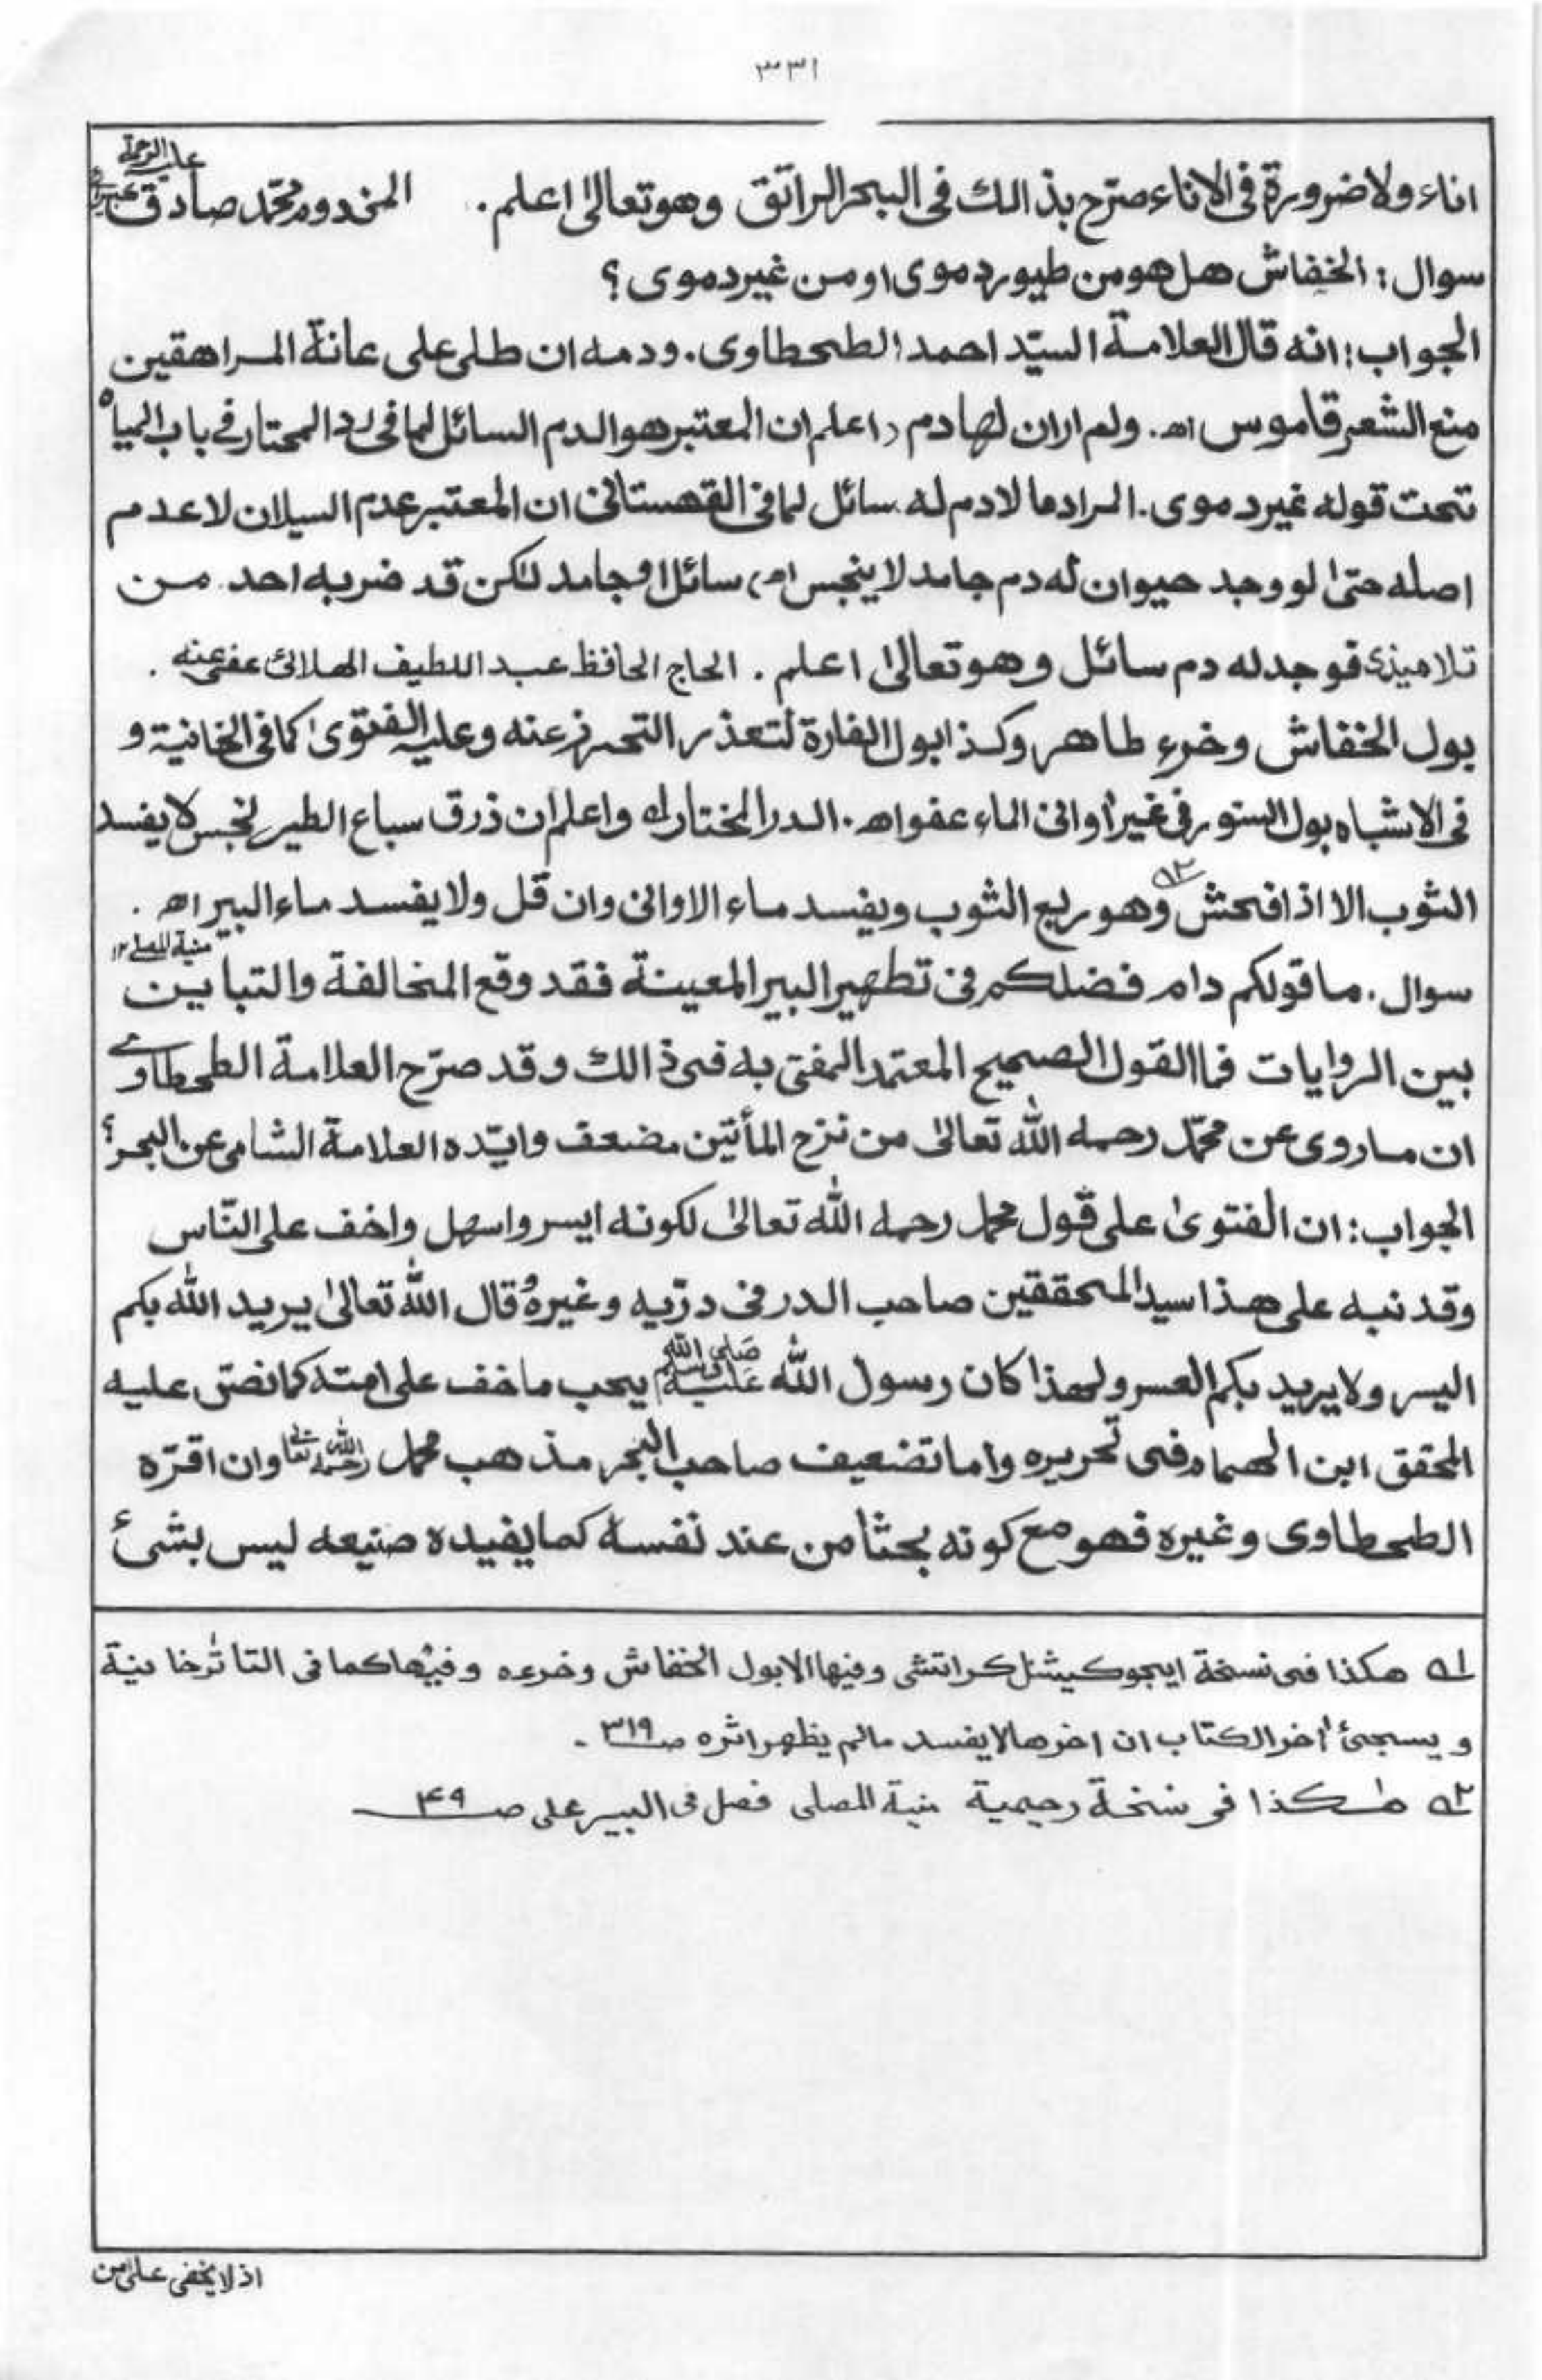 ٣٣١
اناء ولا ضرورة فى الاناء صرّح بذالك فى البحر الرائق وهو تعالىٰ اعلم . المخدوم محمّد صادق عليه الرحمة
سوال : الخفاش هل هو من طيور دموى او من غير دموى ؟
الجواب : انه قال العلامة السيّد احمد الطحطاوى . ودمه ان طلى على عانة المراهقين
منع الشعر قاموس اھ . ولم ار ان لها دم ، اعلم ان المعتبر هو الدم السائل لما فى رد المحتار فى باب المياه
تحت قوله غير دموى . المراد ما لا دم له سائل لما فى القهستانى ان المعتبر عدم السيلان لا عدم
اصله حتىٰ لو وجد حيوان له دم جامد لا ينجس اھ ، سائل او جامد لكن قد ضربه احد من
تلاميذى فوجد له دم سائل وهو تعالىٰ اعلم . الحاج الحافظ عبد اللطيف الهلالى عفى عنه .
بول الخفاش وخرء طاهر وكذا بول الفارة لتعذر التحرز عنه وعليه الفتوىٰ كما فى الخانية و
فى الاشباه بول السنور فى غير اوانى الماء عفو اھ . الدر المختار ١ه واعلم ان ذرق سباع الطير نجس لا يفسد
الثوب الا اذا فحش ٢ه وهو ربع الثوب ويفسد ماء الاوانى وان قل ولا يفسد ماء البير اھ . منية المصلى ١٢
سوال . ما قولكم دام فضلكم فى تطهير البير المعينة فقد وقع المخالفة والتباين
بين الروايات فما القول الصحيح المعتمد المفتى به فى ذالك وقد صرّح العلامة الطحطاوى
ان ما روى عن محمّد رحمه الله تعالىٰ من نزح المأتين مضعف وايّده العلامة الشامى عن البحر ؟
الجواب : ان الفتوىٰ على قول محمد رحمه الله تعالىٰ لكونه ايسر واسهل واخف على النّاس
وقد نبه على هذا سيد المحققين صاحب الدر فى درّيه وغيره قال الله تعالىٰ يريد الله بكم
اليسر ولا يريد بكم العسر ولهذا كان رسول الله صلى الله عليه وسلم يحب ما خف على امته كما نصّ عليه
المحقق ابن الهمام فى تحريره واما تضعيف صاحب البحر مذهب محمد رحمه الله تعالىٰ وان اقرّه
الطحطاوى وغيره فهو مع كونه بحثا من عند نفسه كما يفيده صنيعه ليس بشئ
١ه هكذا فى نسخة ايجوكيشنل كراتشى وفيها الا بول الخفاش وخرءه وفيها كما فى التاترخانية
و يسجئ اخر الكتاب ان اخرها لا يفسد ما لم يظهر اثره صـ٣١٩ـ .
٢ه هٰكذا فى نسخة رحيمية منية المصلى فصل فى البير على صـ۴۹ـ
اذ لا يخفى على من